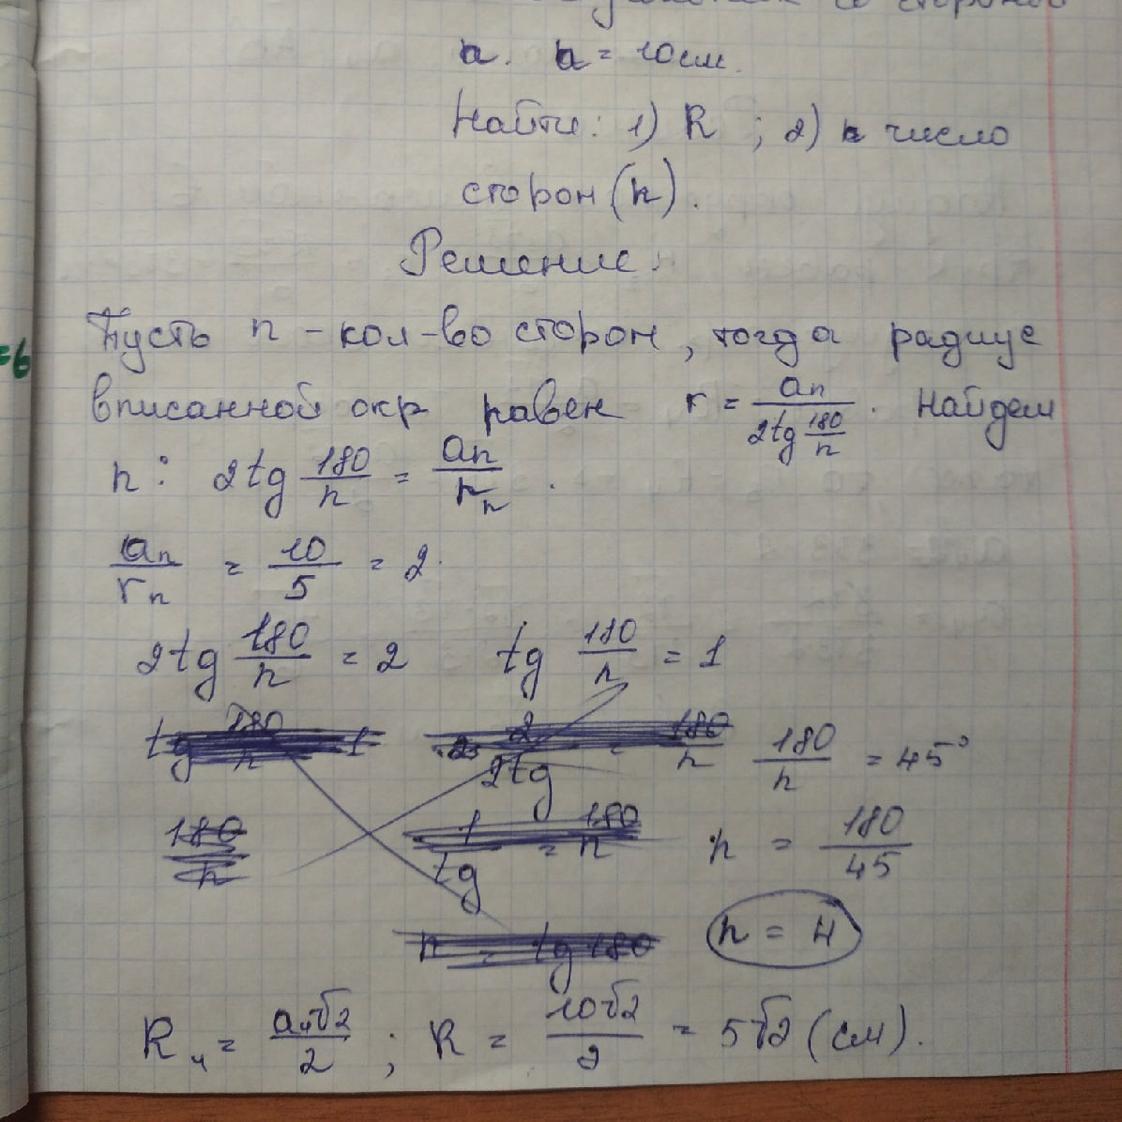 со стороной
a. a = 10см.
Найти: 1) R ; 2) число
сторон (n).
Решение.
Пусть n - кол-во сторон, тогда радиус
=6
вписанной окр равен r = an / 2tg 180/n . Найдем
n: 2tg 180/n = an/rn .
an/rn = 10/5 = 2.
2tg 180/n = 2 tg 180/n = 1
180/n = 45°
n = 180/45
n = 4
R4 = a4√2/2 ; R = 10√2/2 = 5√2 (см).